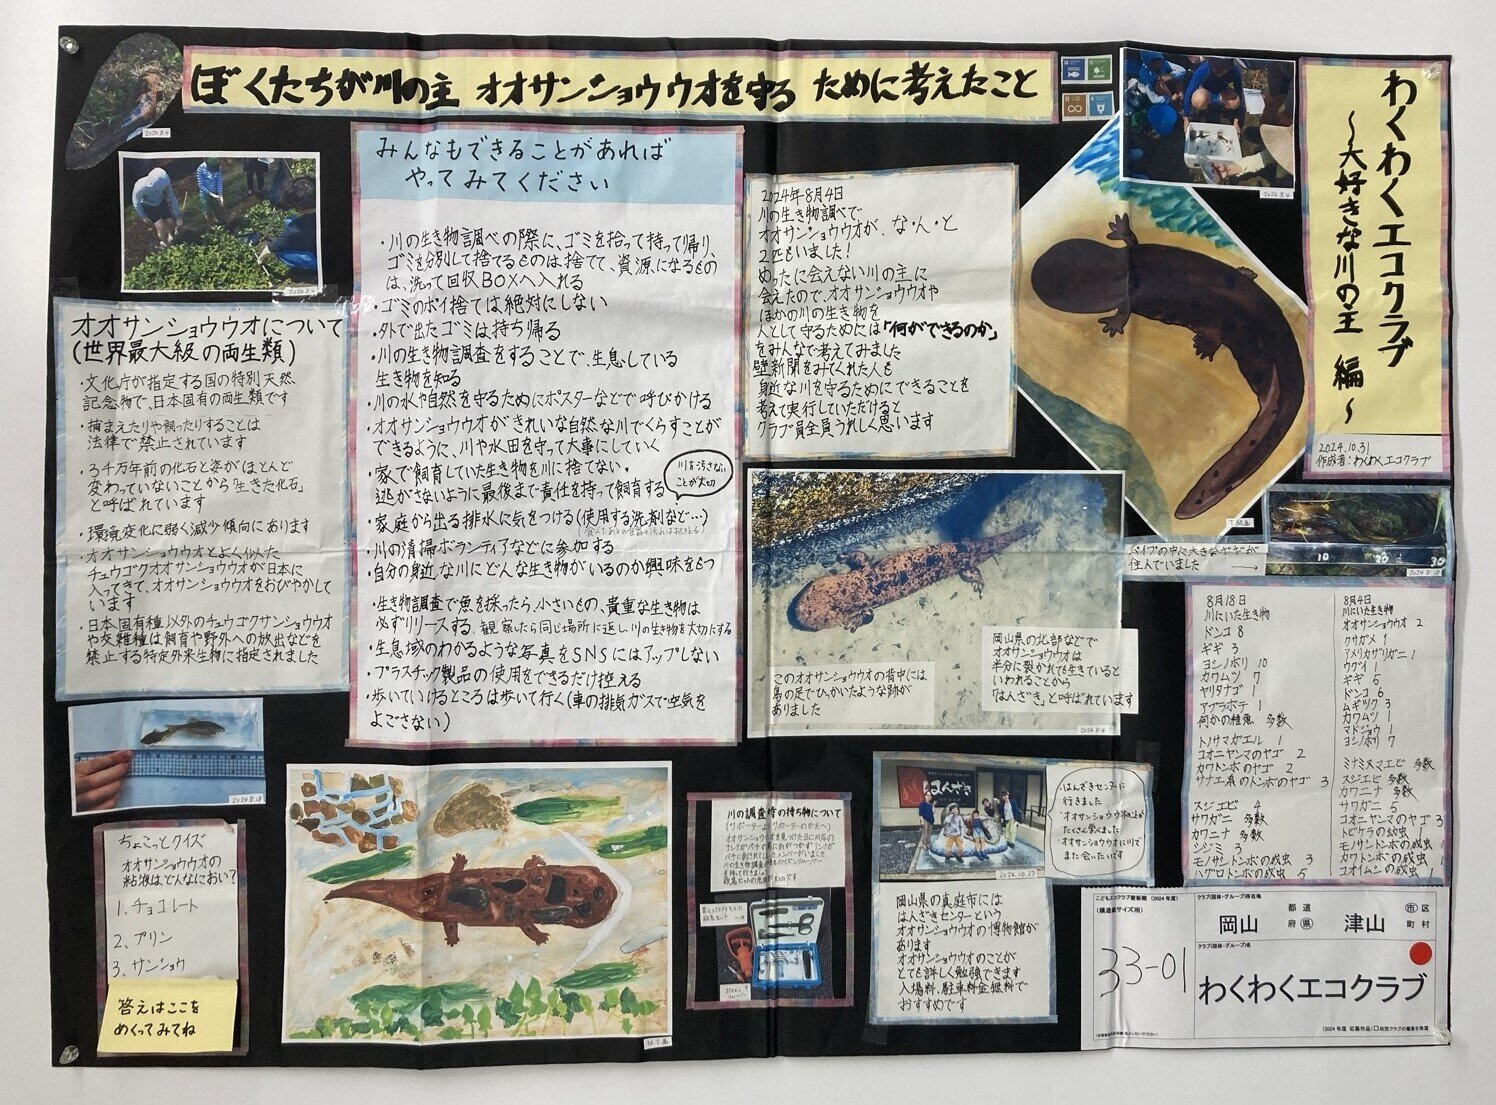 ぼくたちが川の主 オオサンショウウオを守る ために考えたこと
わくわくエコクラブ
～大好きな川の主 編～
2024.10.31
作成者:わくわくエコクラブ
2024.8.4
2024.8.4
2024.8.4
オオサンショウウオについて
(世界最大級の両生類)
・文化庁が指定する国の特別天然
記念物で、日本固有の両生類です
・捕まえたりや飼ったりすることは
法律で禁止されています
・3千万年前の化石と姿がほとんど
変わっていないことから「生きた化石」
と呼ばれています
・環境変化に弱く減少傾向にあります
・オオサンショウウオとよく似た
チュウゴクオオサンショウウオが日本に
入ってきて、オオサンショウウオをおびやかして
います
・日本固有種以外のチュウゴクサンショウウオ
や交雑種は飼育や野外への放出などを
禁止する特定外来生物に指定されました
みんなもできることがあれば
やってみてください
・川の生き物調べの際に、ゴミを拾って持って帰り、
ゴミを分別して捨てるものは、捨てて、資源になるもの
は、洗って回収BOXへ入れる
・ゴミのポイ捨ては絶対にしない
・外で出たゴミは持ち帰る
・川の生き物調査をすることで、生息している
生き物を知る
・川の水や自然を守るためにポスターなどで呼びかける
・オオサンショウウオがきれいな自然な川でくらすことが
できるように、川や水田を守って大事にしていく
・家で飼育していた生き物を川に捨てない。
逃がさないように最後まで責任を持って飼育する
川を汚さない
ことが大切
・家庭から出る排水に気をつける(使用する洗剤など…)
・川の清掃ボランティアなどに参加する
・自分の身近な川にどんな生き物がいるのか興味をもつ
・生き物調査で魚を採ったら、小さいもの、貴重な生き物は
必ずリリースする。観察したら同じ場所に返し、川の生き物を大切にする
・生息域のわかるような写真をSNSにはアップしない
・プラスチック製品の使用をできるだけ控える
・歩いていけるところは歩いて行く(車の排気ガスで空気を
よごさない)
2024年8月4日
川の生き物調べで
オオサンショウウオが、な・ん・と
2匹もいました!
めったに会えない川の主に
会えたので、オオサンショウウオや
ほかの川の生き物を
人として守るためには「何ができるのか」
をみんなで考えてみました
壁新聞をみてくれた人も
身近な川を守るためにできることを
考えて実行していただけると
クラブ員全員うれしく思います
このオオサンショウウオの背中には
鳥の足でひっかいたような跡が
ありました
岡山県の北部などで
オオサンショウウオは
半分に裂かれても生きていると
いわれることから
「はんざき」と呼ばれています
2024.8.4
T.M画
パイプの中に大きなギギが
住んでいました
10 20 30
2024.8.18
8月18日
川にいた生き物
ドンコ 8
ギギ 3
ヨシノボリ 10
カワムツ 7
ヤリタナゴ 1
アブラボテ 1
何かの稚魚 多数
トノサマガエル 1
コオニヤンマのヤゴ 2
カワトンボのヤゴ 2
サナエ系のトンボのヤゴ 3
スジエビ 4
サワガニ 多数
カワニナ 多数
シジミ 3
モノサシトンボの成虫 3
ハグロトンボの成虫 5
8月4日
川にいた生き物
オオサンショウウオ 2
クサガメ 1
アメリカザリガニ 1
ウグイ 1
ギギ 5
ドンコ 6
ムギツク 3
カワムツ 1
マドジョウ 1
ヨシノボリ 7
ミナミヌマエビ 多数
スジエビ 多数
カワニナ 多数
サワガニ 5
コオニヤンマのヤゴ 3
トビケラの幼虫 1
モノサシトンボの成虫 1
カワトンボの成虫 1
コオイムシの成虫 1
2024.8.18
ちょこっとクイズ
オオサンショウウオの
粘液はどんなにおい?
1、チョコレート
2、プリン
3、サンショウ
答えはここを
めくってみてね
M.T画
川の調査時の持ち物について
はんざき
2024.10.27
・はんざきセンターに
行きました
・オオサンショウウオのことが
たくさん学べました
・オオサンショウウオに川で
また会いたいです
岡山県の真庭市には
はんざきセンターという
オオサンショウウオの博物館が
あります
オオサンショウウオのことが
とても詳しく勉強できます
入場料、駐車料金無料で
おすすめです
こどもエコクラブ壁新聞(2024年度)
(模造紙サイズ用)
33-01
クラブ(団体・グループ)所在地
岡山 都道府県 津山 市区町村
クラブ(団体・グループ)名
わくわくエコクラブ
(2024年度 応募作品)□幼児クラブの審査を希望